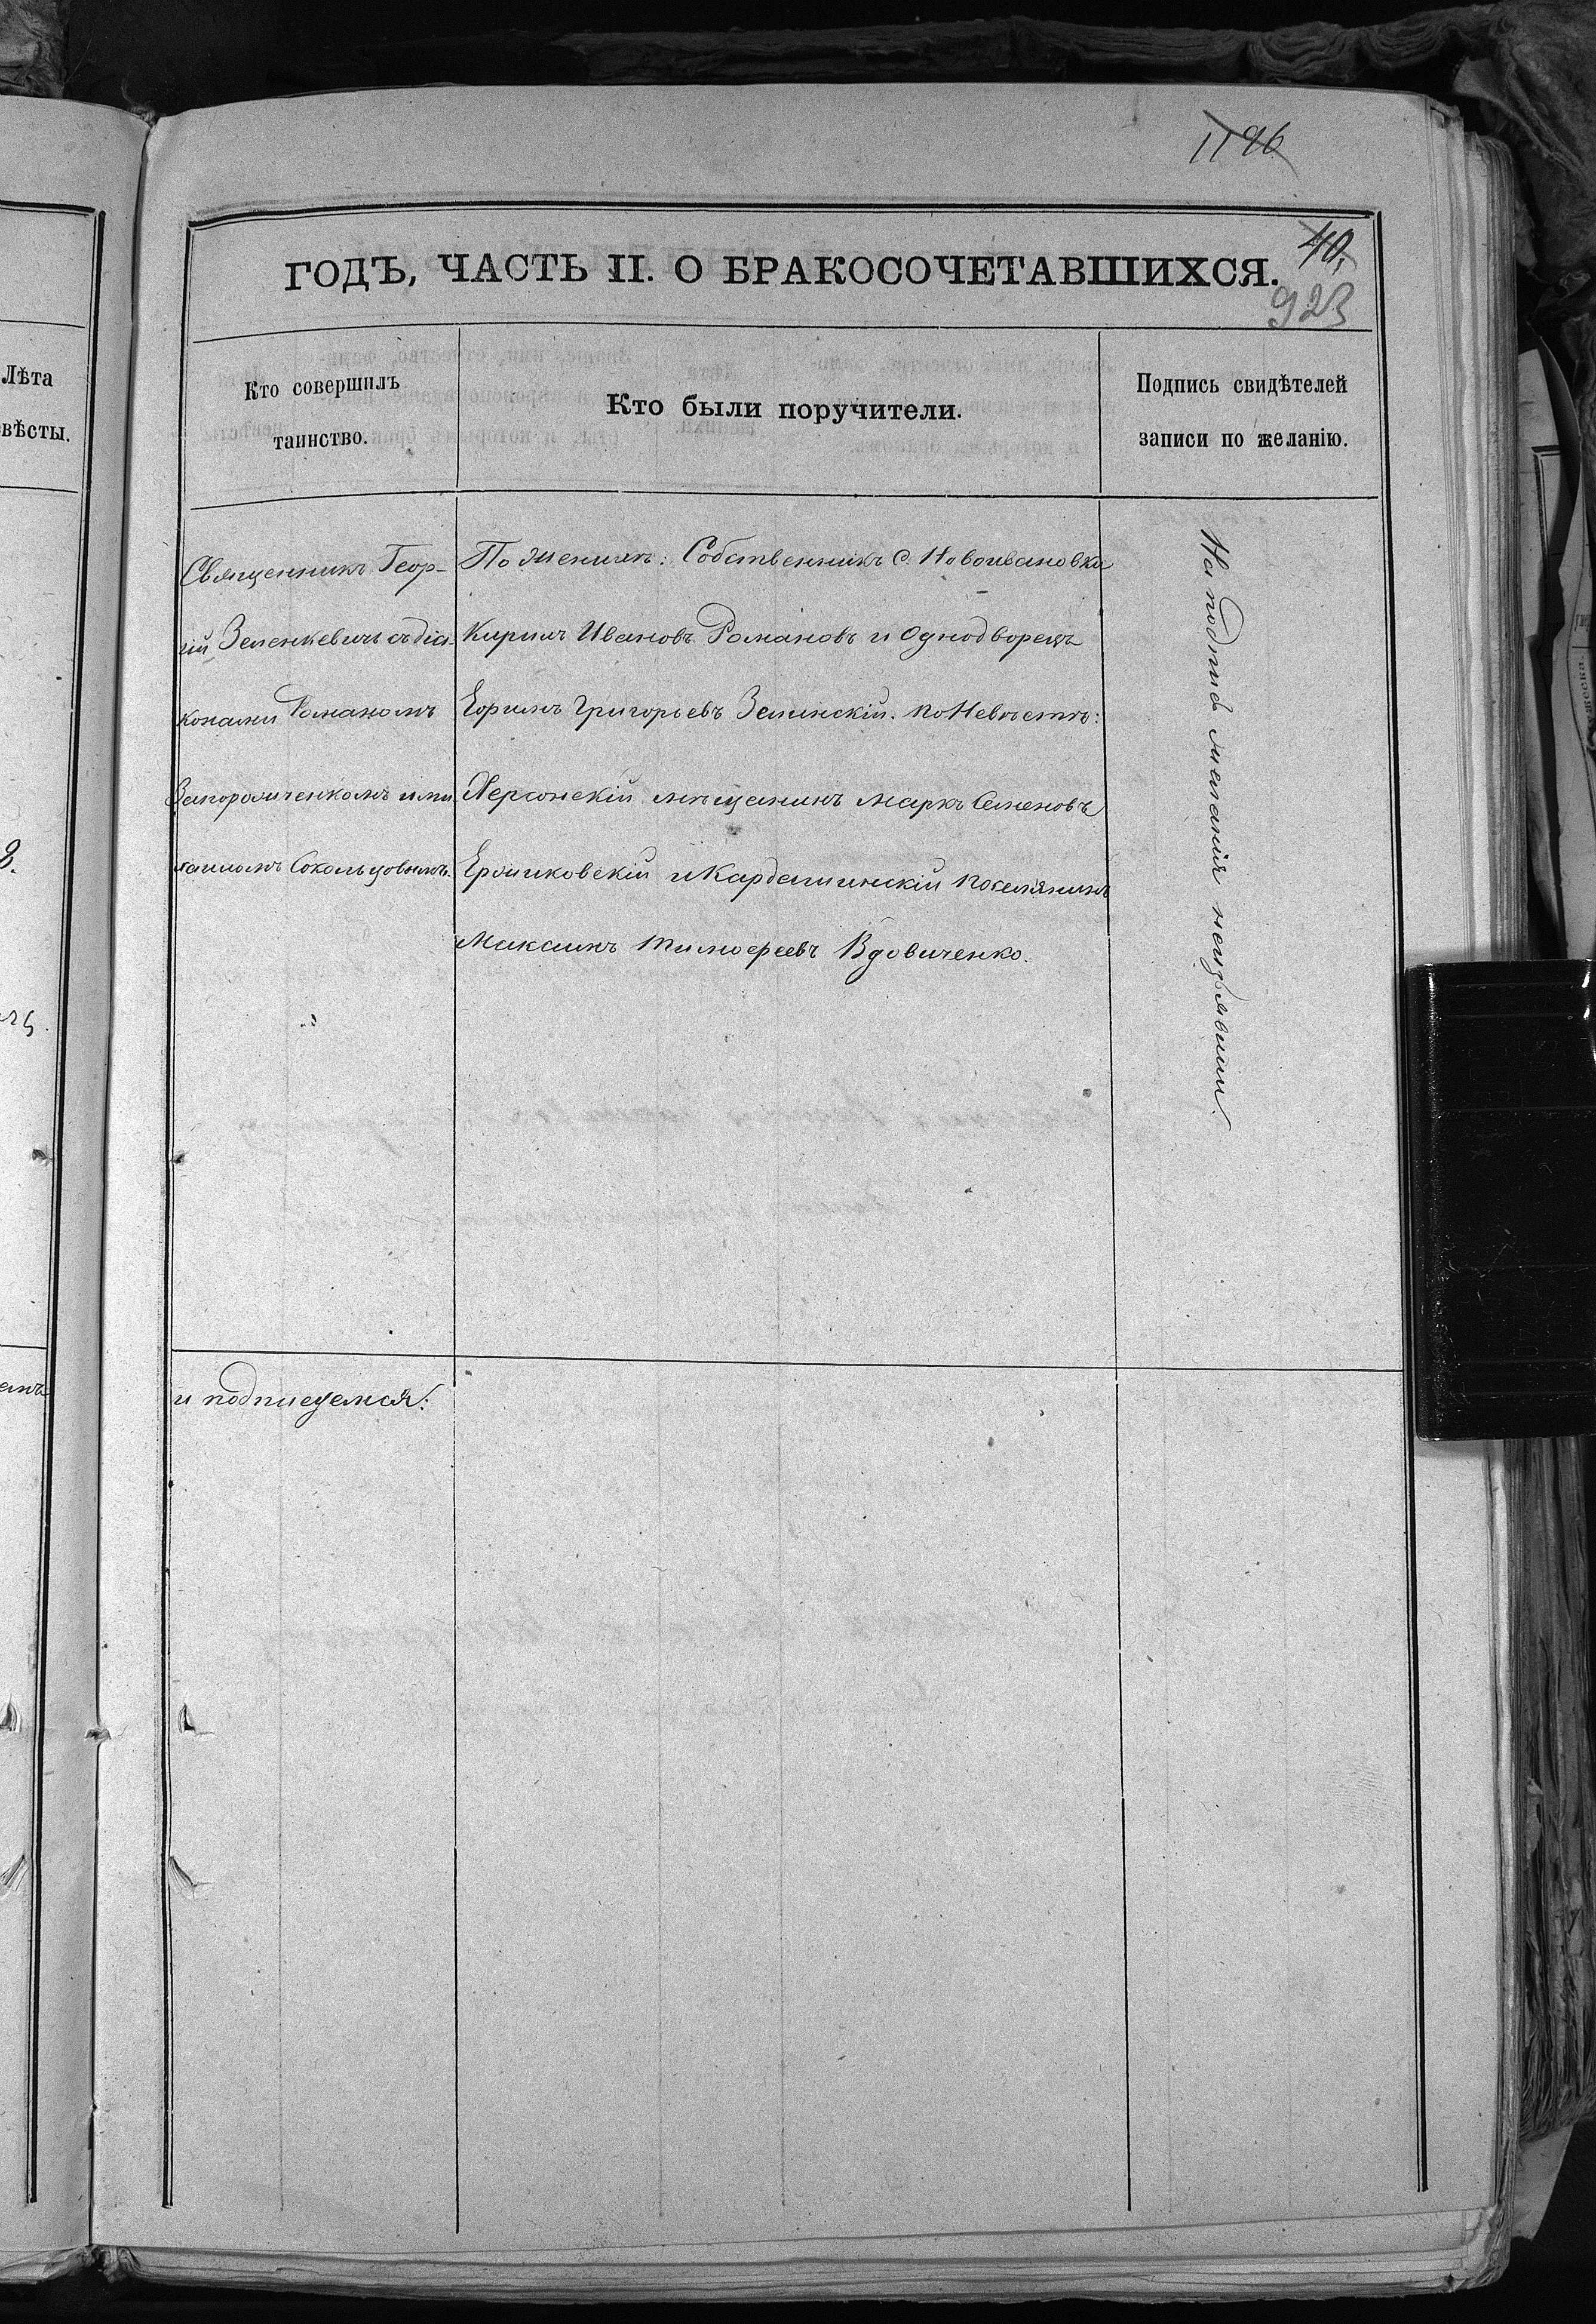 1196
ГОДЪ, ЧАСТЬ II. О БРАКОСОЧЕТАВШИХСЯ.
40,
923
Лѣта
вѣсты.
Кто совершилъ
таинство.
Кто были поручители.
Подпись свидѣтелей
записи по желанію.
Священникъ Геор-
гій Зеленкевичъ съ дія-
конами Романомъ
Запорожченкомъ и ми
хаиломъ Сокальцовымъ.
По Жениху: Собственникъ С. Новоивановки
Кирилъ Ивановъ Романовъ и Однодворецъ
Ефимъ Григорьевъ Зелинскій. по Невѣстѣ:
Херсонскій мѣщанинъ Маркъ Семеновъ
Ерошковскій и Кардашинскій поселянинъ
Максимъ Тимофеевъ Вдовиченко.
На подпись желанія неизъявили.
и подписуемся: